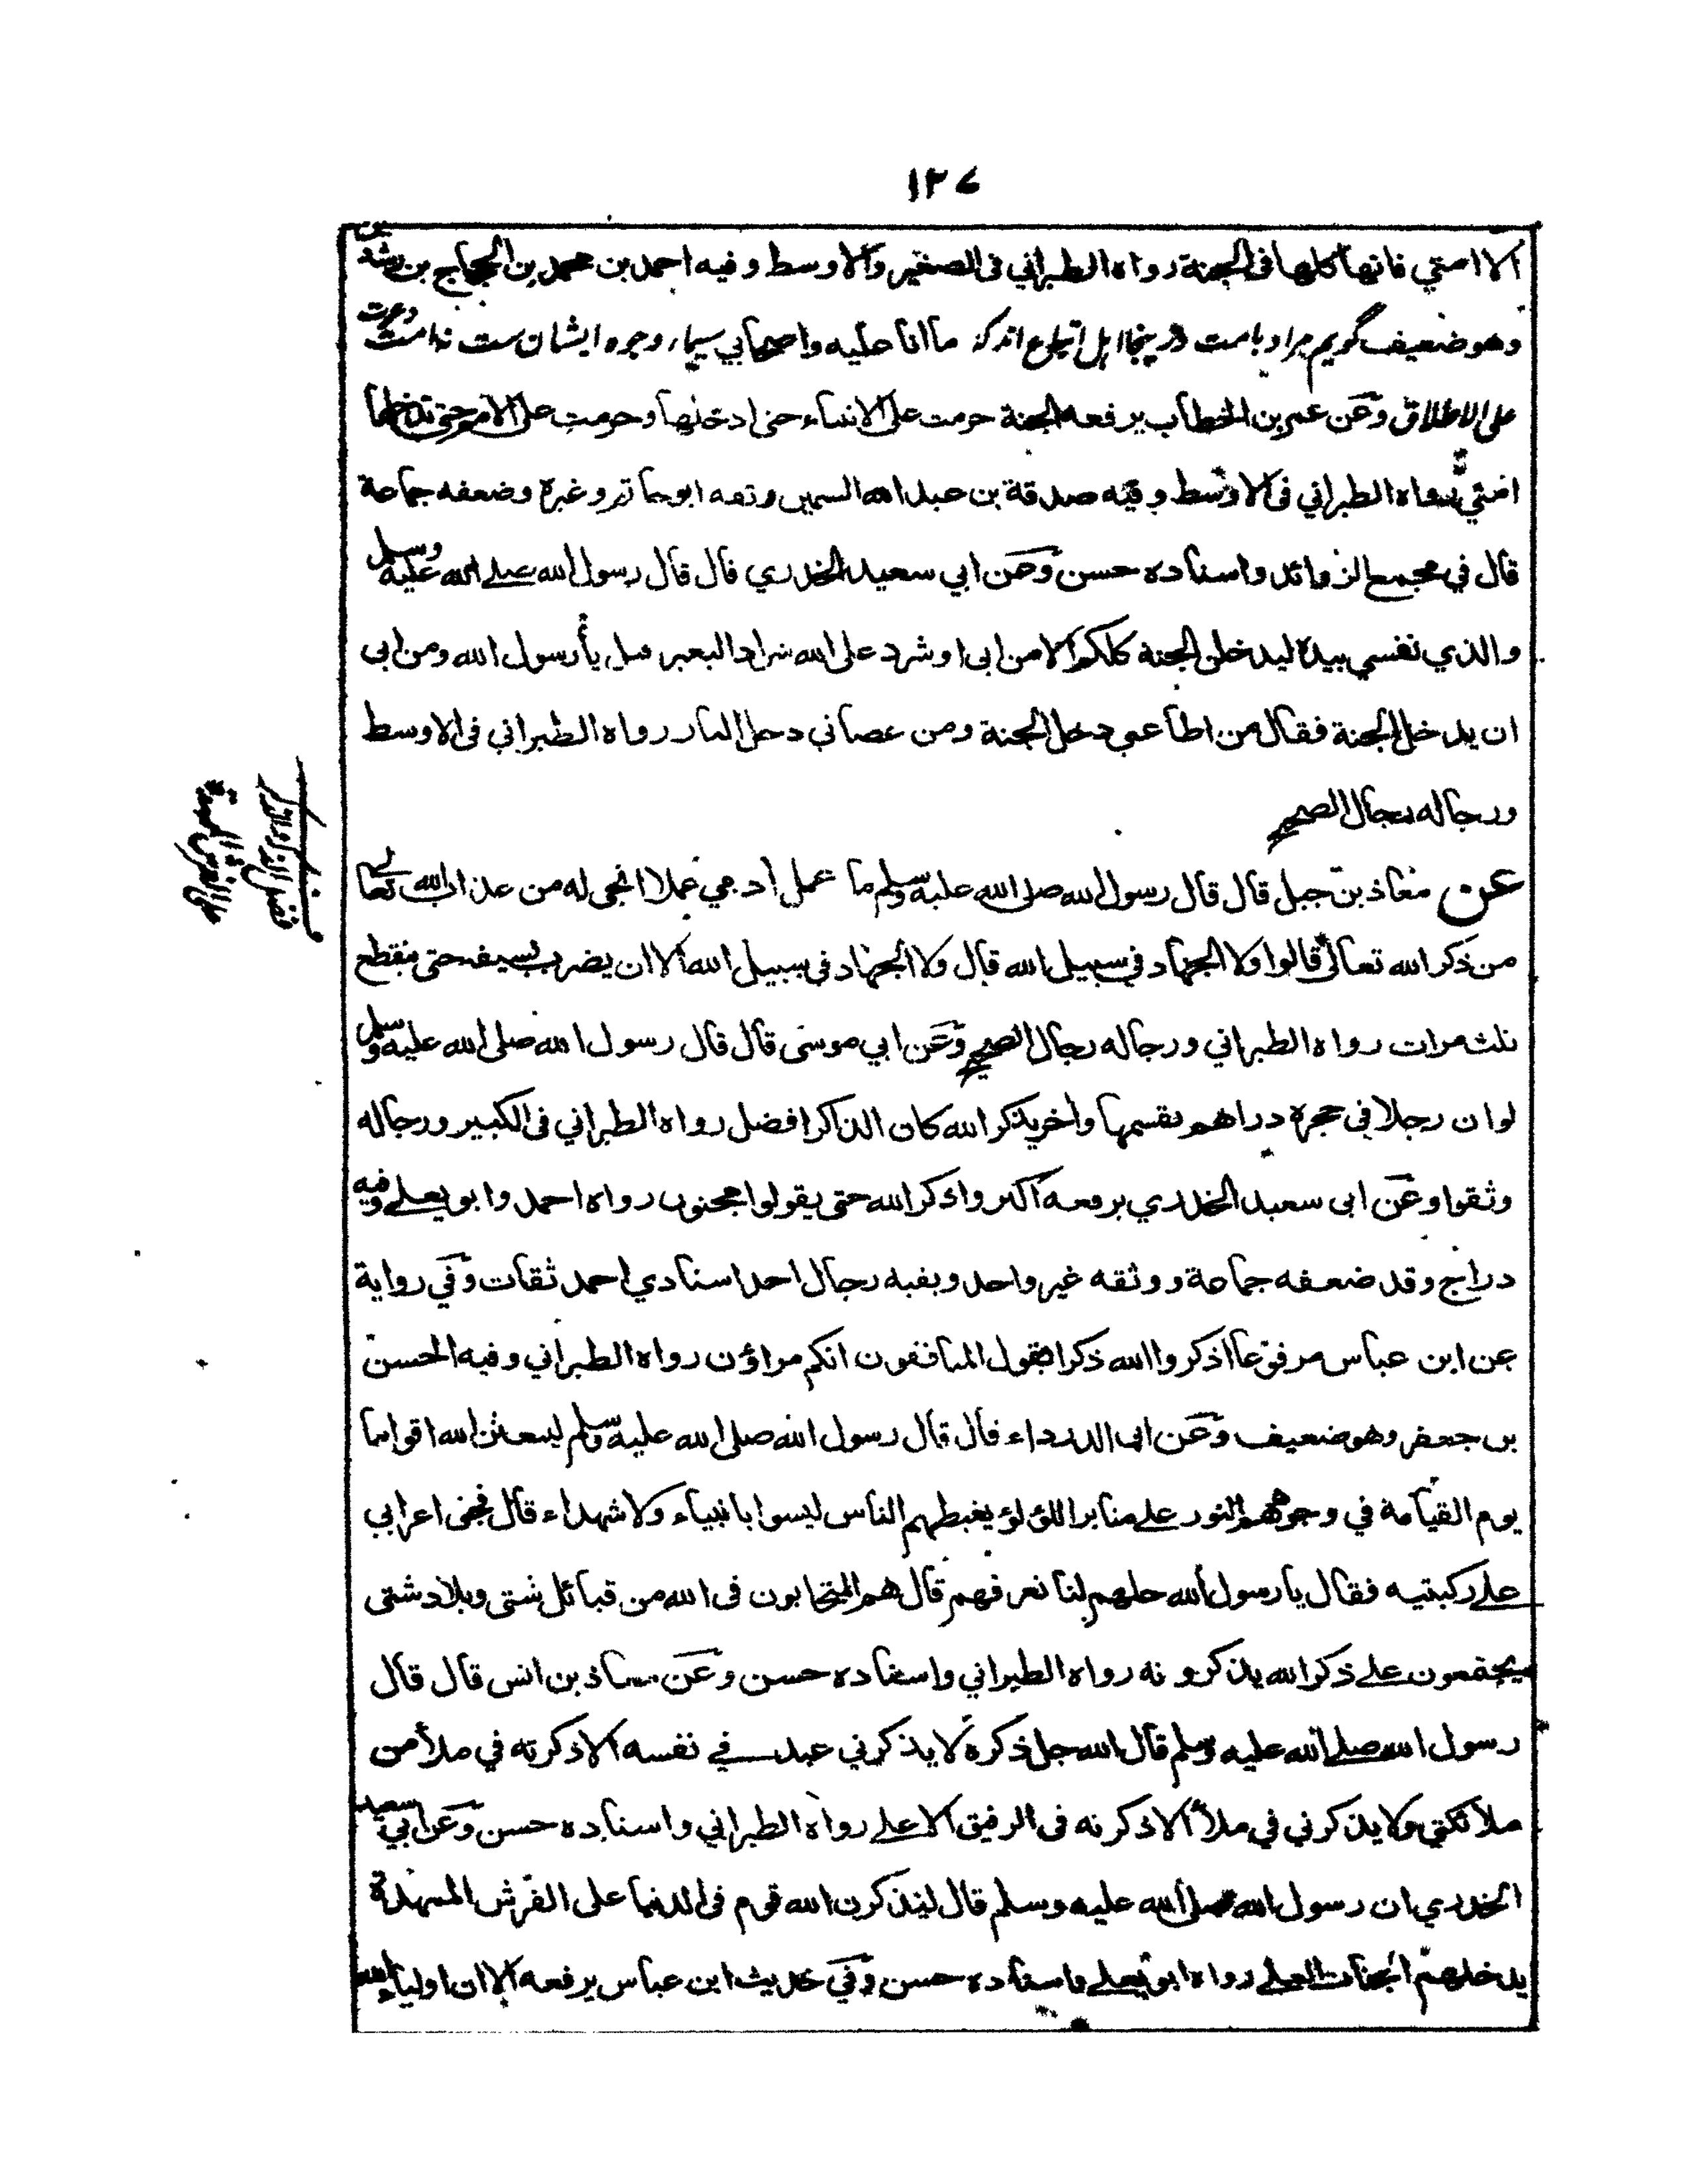 ١٣٧
الا امتي فانها كلها في الجنة رواه الطبراني في الصغير والاوسط وفيه احمد بن محمد بن الحجاج بن رشدين
وهو ضعيف گويم مراد بامت در ينجا اهل اتباع اند كه ما انا عليه واصحابي سيماء وجوه ايشان ست نه امت دعوت
على الاطلاق وعن عمر بن الخطاب يرفعه الجنة حرمت على الانبياء حتى ادخلها وحرمت على الامم حتى تدخلها
امتي رواه الطبراني في الاوسط وفيه صدقة بن عبد الله السمين وثقه ابو حاتم وغيره وضعفه جماعة
قال في مجمع الزوائد واسناده حسن وعن ابي سعيد الخدري قال قال رسول الله صلى الله عليه وسلم
والذي نفسي بيده ليدخلن الجنة كلكم الا من ابى او شرد على الله شراد البعير قيل يا رسول الله ومن ابى
ان يدخل الجنة فقال من اطاعني دخل الجنة ومن عصاني دخل النار رواه الطبراني في الاوسط
ورجاله رجال الصحيح
عن معاذ بن جبل قال قال رسول الله صلى الله عليه وسلم ما عمل آدمي عملا انجى له من عذاب الله تعالى
من ذكر الله تعالى قالوا ولا الجهاد في سبيل الله قال ولا الجهاد في سبيل الله الا ان يضرب بسيفه حتى ينقطع
ثلث مرات رواه الطبراني ورجاله رجال الصحيح وعن ابي موسى قال قال رسول الله صلى الله عليه وسلم
لو ان رجلا في حجره دراهم يقسمها وآخر يذكر الله كان الذاكر افضل رواه الطبراني في الكبير ورجاله
وثقوا وعن ابي سعيد الخدري يرفعه اكثروا ذكر الله حتى يقولوا مجنون رواه احمد وابو يعلى وفيه
دراج وقد ضعفه جماعة ووثقه غير واحد وبقية رجال احد اسنادي احمد ثقات وفي رواية
عن ابن عباس مرفوعا اذكروا الله ذكرا يقول المنافقون انكم مراؤن رواه الطبراني وفيه الحسن
بن جعفر وهو ضعيف وعن ابي الدرداء قال قال رسول الله صلى الله عليه وسلم ليبعثن الله اقواما
يوم القيامة في وجوههم النور على منابر اللؤلؤ يغبطهم الناس ليسوا بانبياء ولا شهداء قال فجثى اعرابي
على ركبتيه فقال يا رسول الله حلهم لنا نعرفهم قال هم المتحابون في الله من قبائل شتى وبلاد شتى
يجتمعون على ذكر الله يذكرونه رواه الطبراني واسناده حسن وعن معاذ بن انس قال قال
رسول الله صلى الله عليه وسلم قال الله جل ذكره لا يذكرني عبد في نفسه الا ذكرته في ملأ من
ملائكتي ولا يذكرني في ملأ الا ذكرته في الرفيق الاعلى رواه الطبراني واسناده حسن وعن ابي سعيد
الخدري ان رسول الله صلى الله عليه وسلم قال ليذكرن الله قوم في الدنيا على الفرش الممهدة
يدخلهم الجنات العلى رواه ابو يعلى واسناده حسن وفي حديث ابن عباس يرفعه الا ان اولياء الله